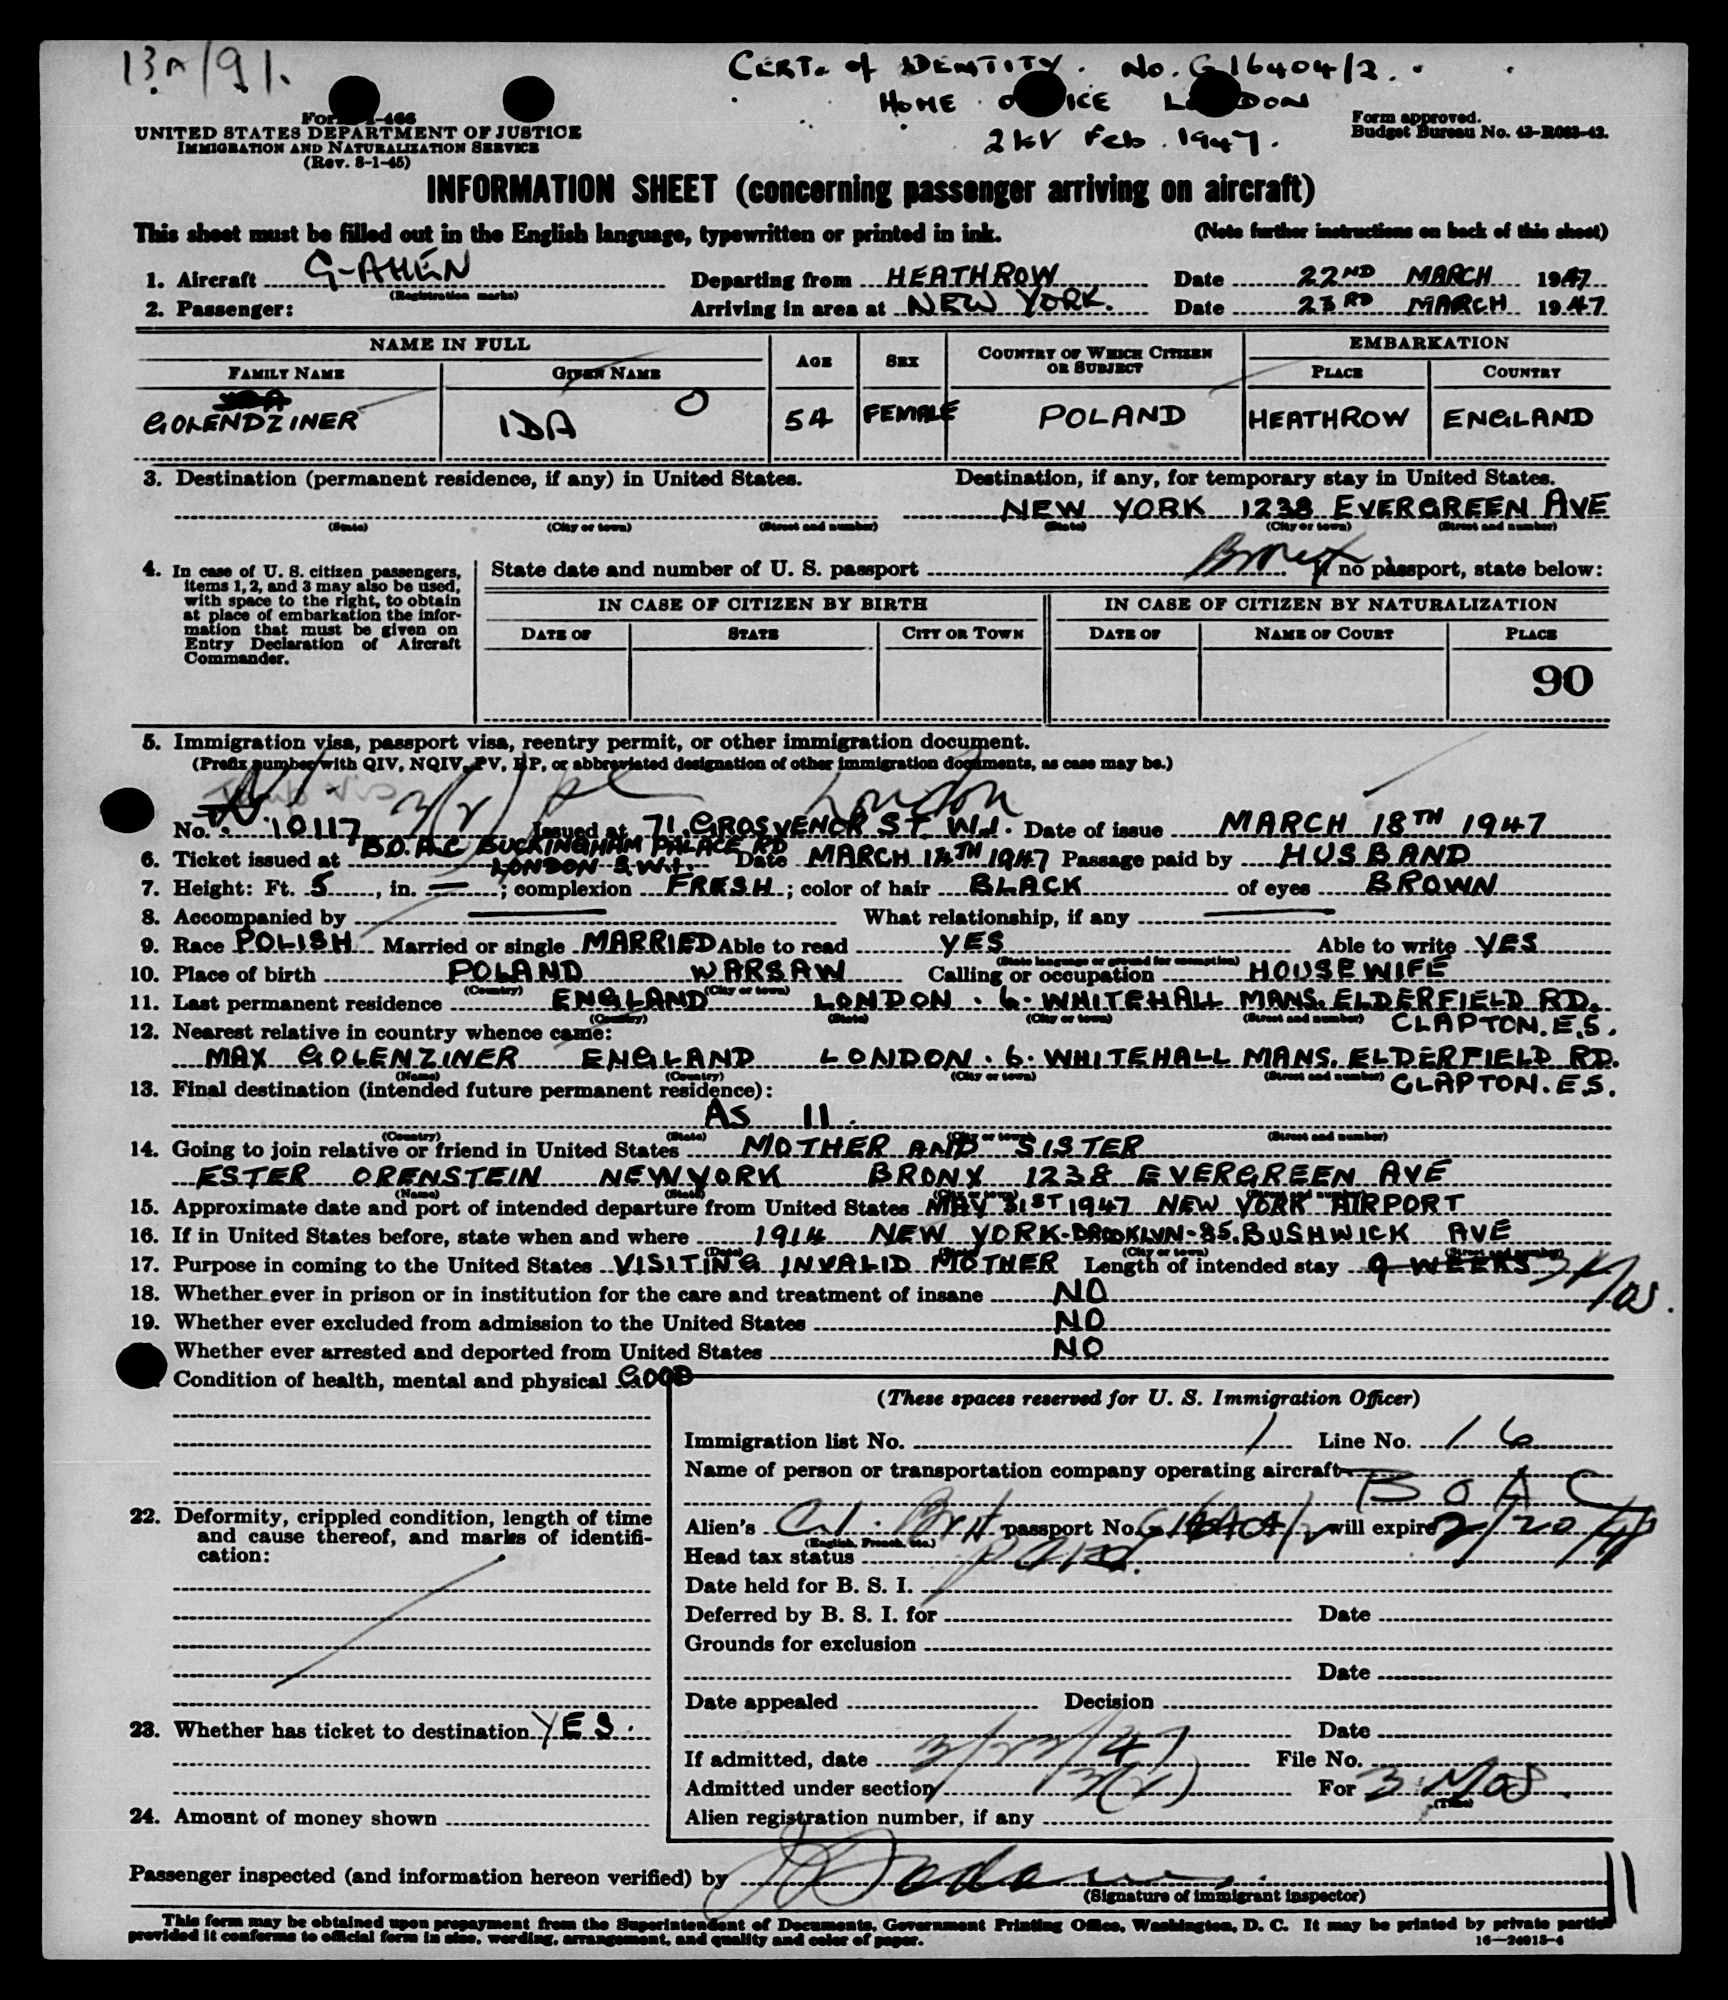 13A/91.
CERT. of IDENTITY. No. G 16404/2.
HOME OFFICE LONDON
Feb. 1947.
Form I-466
UNITED STATES DEPARTMENT OF JUSTICE
IMMIGRATION AND NATURALIZATION SERVICE
(Rev. 8-1-45)
Form approved.
Budget Bureau No. 43-R083-42.
INFORMATION SHEET (concerning passenger arriving on aircraft)
This sheet must be filled out in the English language, typewritten or printed in ink. (Note further instructions on back of this sheet)
1. Aircraft G-AHEN Departing from HEATHROW Date 22ND MARCH 1947
(Registration marks)
2. Passenger: Arriving in area at NEW YORK. Date 23RD MARCH 1947
NAME IN FULL AGE SEX COUNTRY OF WHICH CITIZEN OR SUBJECT EMBARKATION
FAMILY NAME GIVEN NAME PLACE COUNTRY
GOLENDZINER IDA O 54 FEMALE POLAND HEATHROW ENGLAND
3. Destination (permanent residence, if any) in United States. Destination, if any, for temporary stay in United States.
NEW YORK 1238 EVERGREEN AVE
(State) (City or town) (Street and number) (State) (City or town) (Street and number)
Bronx
4. In case of U. S. citizen passengers, items 1, 2, and 3 may also be used, with space to the right, to obtain at place of embarkation the information that must be given on Entry Declaration of Aircraft Commander.
State date and number of U. S. passport If no passport, state below:
IN CASE OF CITIZEN BY BIRTH IN CASE OF CITIZEN BY NATURALIZATION
DATE OF STATE CITY OR TOWN DATE OF NAME OF COURT PLACE
90
5. Immigration visa, passport visa, reentry permit, or other immigration document.
(Prefix number with QIV, NQIV, PV, RP, or abbreviated designation of other immigration documents, as case may be.)
3(2) London
No. 10117 Issued at 71. GROSVENOR ST. W.1. Date of issue MARCH 18TH 1947
6. Ticket issued at B.O.A.C BUCKINGHAM PALACE RD LONDON S.W.1. Date MARCH 14TH 1947 Passage paid by HUSBAND
7. Height: Ft. 5, in. —; complexion FRESH; color of hair BLACK of eyes BROWN
8. Accompanied by — What relationship, if any —
9. Race POLISH Married or single MARRIED Able to read YES Able to write YES
(State language or ground for exemption)
10. Place of birth POLAND WARSAW Calling or occupation HOUSEWIFE
(Country) (City or town)
11. Last permanent residence ENGLAND LONDON. 6. WHITEHALL MANS. ELDERFIELD RD.
(Country) (State) (City or town) (Street and number) CLAPTON. E.5.
12. Nearest relative in country whence came:
MAX GOLENZINER ENGLAND LONDON. 6. WHITEHALL MANS. ELDERFIELD RD.
(Name) (Country) (City or town) (Street and number) CLAPTON. E.5.
13. Final destination (intended future permanent residence):
AS 11.
(Country) (State) (City or town) (Street and number)
14. Going to join relative or friend in United States MOTHER AND SISTER
ESTER ORENSTEIN NEW YORK BRONX 1238 EVERGREEN AVE
(Name) (State) (City or town) (Street and number)
15. Approximate date and port of intended departure from United States MAY 31ST 1947 NEW YORK AIRPORT
16. If in United States before, state when and where 1914 NEW YORK-BROOKLYN-85. BUSHWICK AVE
(Date) (State) (City or town) (Street and number)
17. Purpose in coming to the United States VISITING INVALID MOTHER Length of intended stay 9 WEEKS 3 Mos.
18. Whether ever in prison or in institution for the care and treatment of insane NO
19. Whether ever excluded from admission to the United States NO
Whether ever arrested and deported from United States NO
Condition of health, mental and physical GOOD
(These spaces reserved for U. S. Immigration Officer)
Immigration list No. 1 Line No. 16
Name of person or transportation company operating aircraft
B O A C
22. Deformity, crippled condition, length of time and cause thereof, and marks of identification:
Alien's C.I. Brit passport No. G16404/2 will expire 2/20/48
(English, French, etc.)
Head tax status Paid.
Date held for B. S. I.
Deferred by B. S. I. for Date
Grounds for exclusion
Date
Date appealed Decision
23. Whether has ticket to destination YES.
Date
If admitted, date 3/23/47 File No.
Admitted under section 3(2) For 3 Mos.
(Time)
24. Amount of money shown
Alien registration number, if any
Passenger inspected (and information hereon verified) by
(Signature of immigrant inspector)
11
This form may be obtained upon prepayment from the Superintendent of Documents, Government Printing Office, Washington, D. C. It may be printed by private parties
provided it conforms to official form in size, wording, arrangement, and quality and color of paper.
16—24913-4